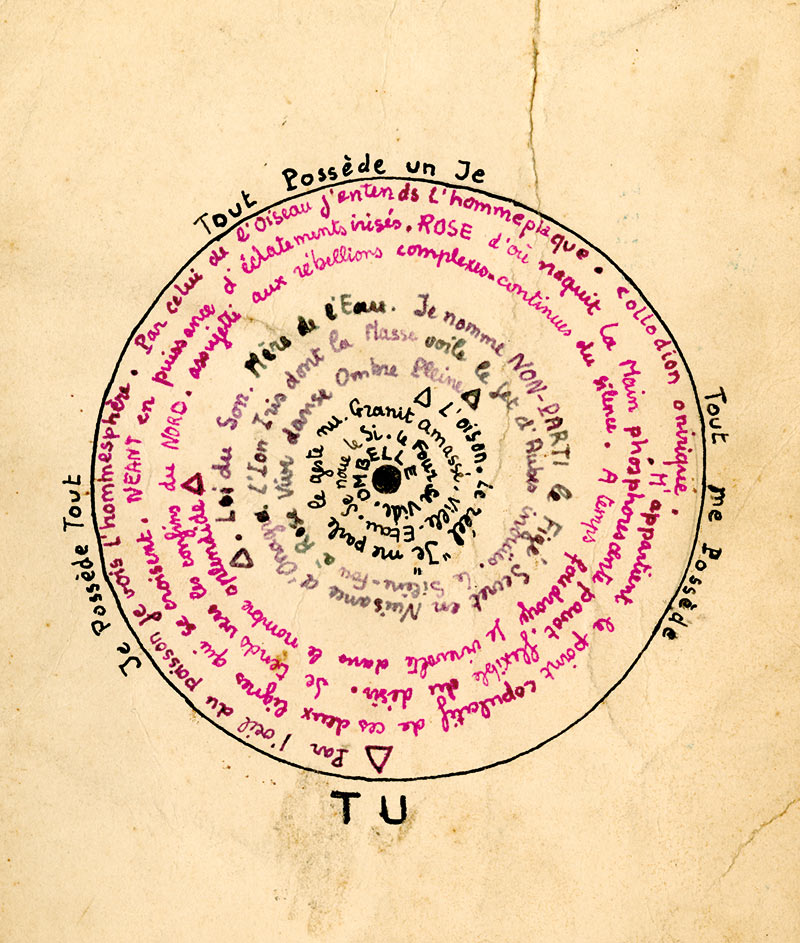 Tout Possède un Je
Tout me Possède
Je Possède Tout
TU
Par l'oeil du poisson je vois l'hommesphère. Par celui de l'Oiseau j'entends l'hommeplaque. Collodion onirique. M'appartient le point copulatif de ces deux lignes qui se croisent. NEANT en puissance d'éclatements irisés. ROSE d'où naquit la Main phosphorescente pavot, flexible du désir. Je tends vers les confins du NORD. assujetti aux rébellions complexes-continues du silence. A temps foudroyé je virevolte dans le nombre splendide
Loi du Son. Mère de l'Eau. Je nomme NON-PARTI le Figé Secret en Nuisance d'Orage. L'Ion Iris dont la Masse voile le d'Aubes le Silène-Fou à Rose Vive danse Ombre Pleine
L'oison. Le réel "Je" me parle le geste nu. Granit amassé. Etau. Je noue le Si. le Four se Vide. OMBELLE